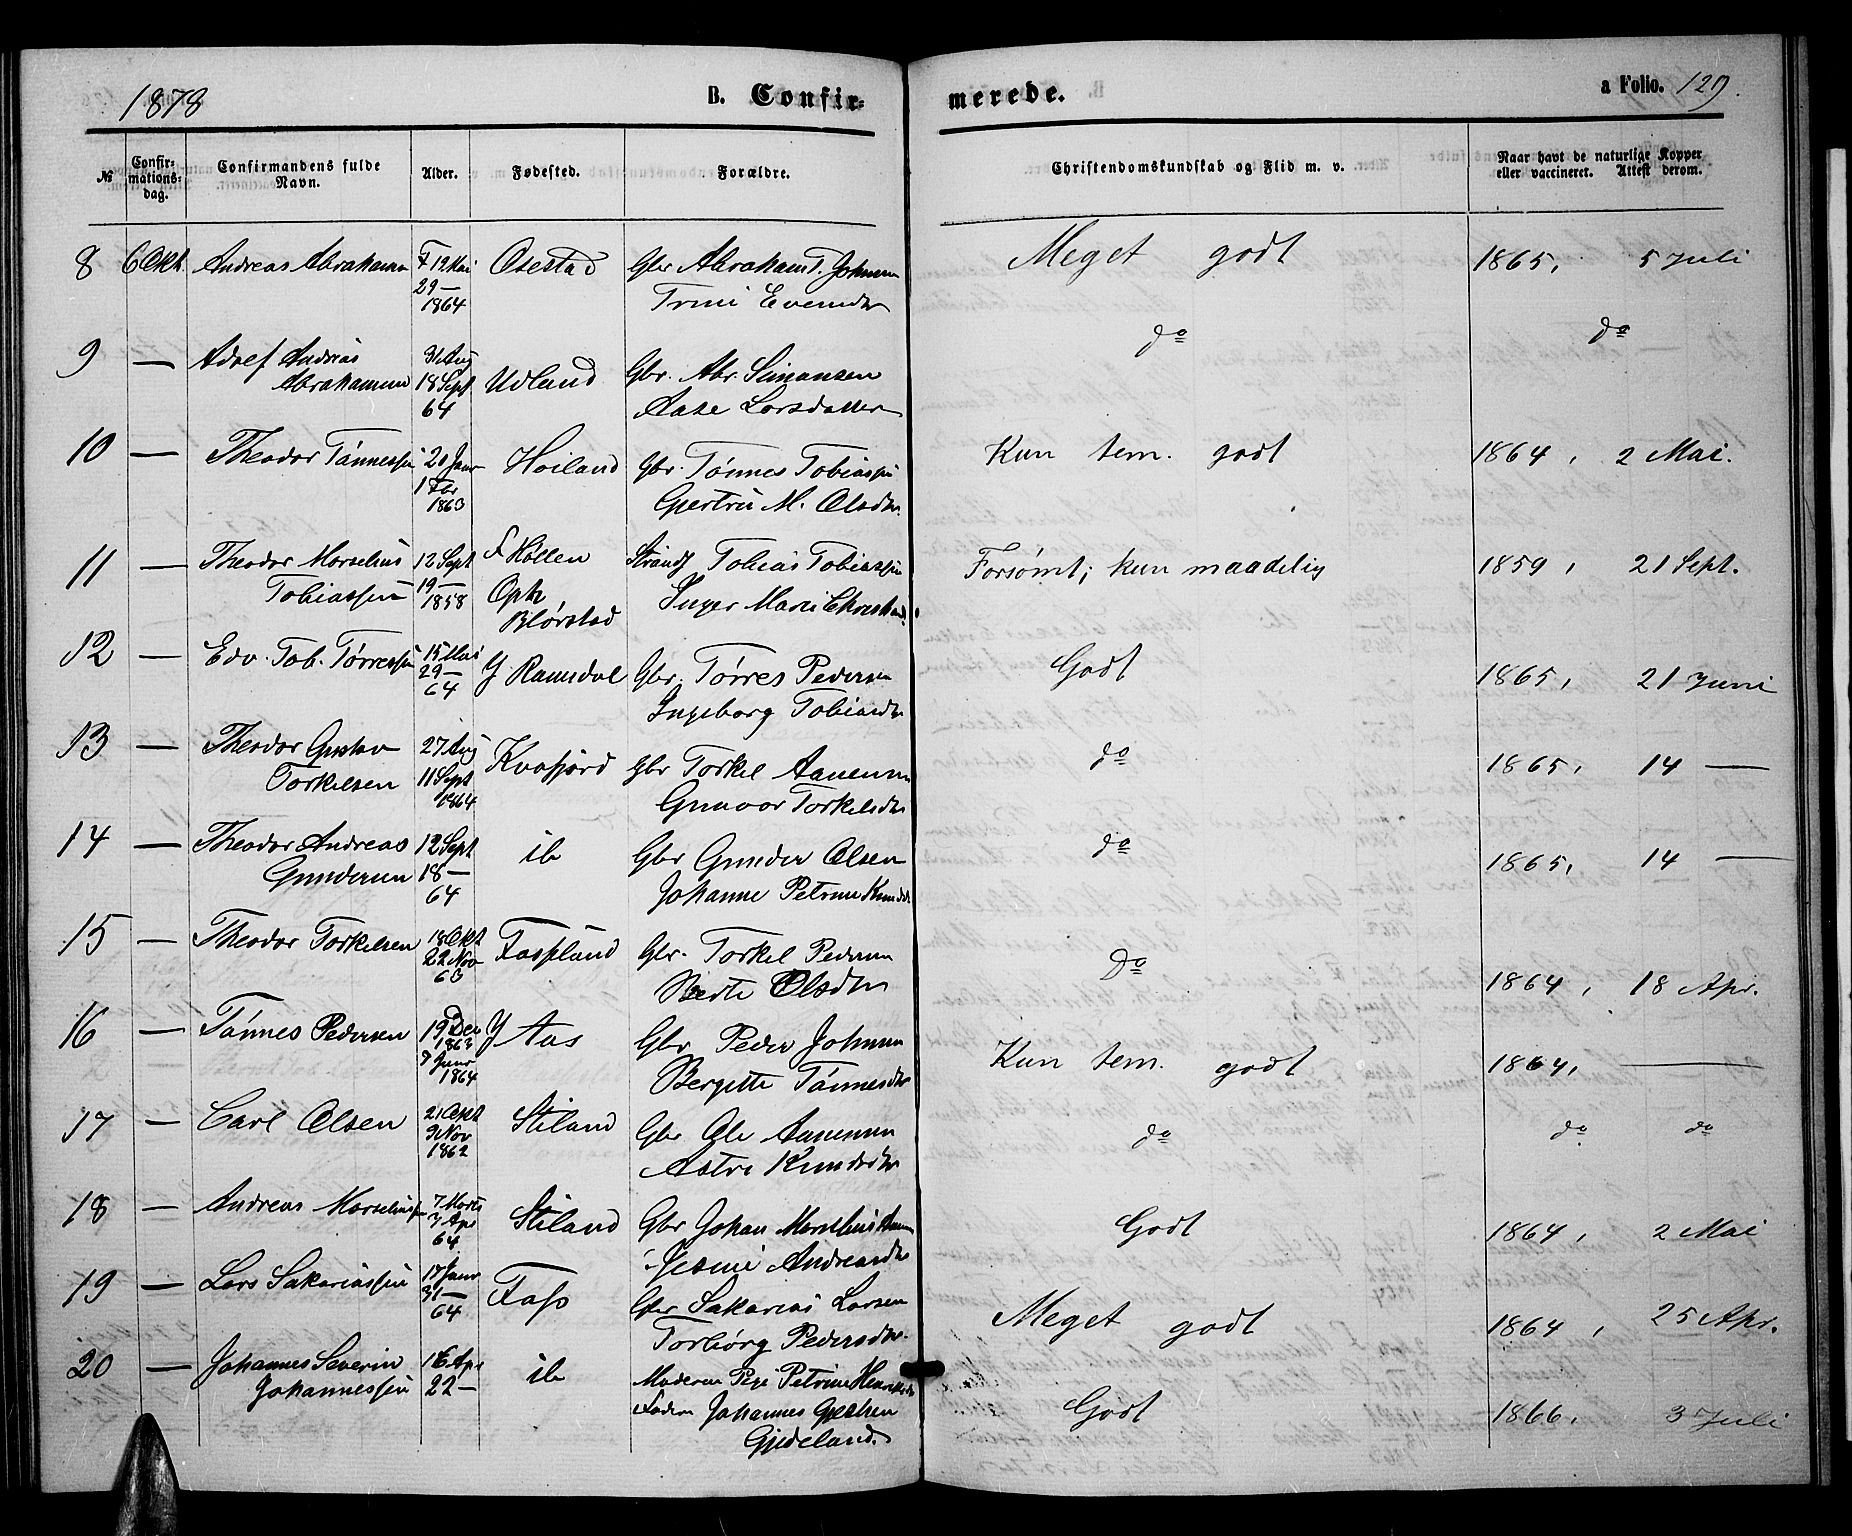 1878
B. Confir-
merede.
a Folio. 129.
№
Confir-
mations-
dag.
Confirmandens fulde
Navn.
Alder.
Fødested.
Forældre.
Christendomskundskab og Flid m. v.
Naar havt de naturlige Kopper
eller vaccineret. Attest derom.
8 6 Okt. Andreas Abrahamsen Osestad Gbr Abraham T. Johnsen Meget godt 1865, 5 Juli
29 —
1864
9 — Adolf Andreas 31 Aug Gbr. Abr. Simonsen do do
Abrahamsen 18 Sept Udland Aase Larsdatter
64
10 — Theodor Tønnessen 20 Janr Høiland Gbr. Tønnes Tobiassen Kun tem. godt 1864, 2 Mai.
1 Fbr Gjertru M. Olsdtr.
1863
11 — Theodor Marselius 12 Sept F Høllen Strands Tobias Tobiassen Forsømt; kun maadelig 1859, 21 Sept.
Tobiassen 19 — Oph. Inger Marie
1858
12 — Edv. Tob. Tørressen 15 Mai Y Ramsdal Gbr. Tørres Pedersen Godt 1865, 21 Juni
29 — Ingeborg Tobiasdtr
64
13 — Theodor Gustav 27 Aug Kvafjord Gbr Torkel Aanensen do 1865, 14 —
Torkelsen 11 Sept Gunvor Torkelsdtr
1864
14 — Theodor Andreas 12 Sept ib Gbr Gunder Olsen do 1865, 14 —
Gundersen 18 — Johanne Petrine Knudsdtr
64
15 — Theodor Torkelsen 18 Okt Gbr. Torkel Pedersen Do 1864, 18 Apr.
22 Nov Berte Olsdtr
63
16 — Tønnes Pedersen 19 Dec Y Aas Gbr Peder Johnsen Kun tem. godt 1864, —
1863 Bergitte Tønnesdtr
Janr
1864
17 — Carl Olsen 21 Okt Stiland Gbr Ole Aanensen do do do
9 Nov Astri Knudsdtr
1862
18 — Andreas Marseliussen 7 Marts Stiland Gbr Johan Marselius Godt 1864, 2 Mai
3 Apr Jesine Andreasdtr
64
19 — Lars Sakariassen 17 Janr Gbr Sakarias Larsen Meget godt 1864, 25 Apr.
31 — Torborg Pedersdtr.
64
20 — Johannes Severin 16 Apr ib Moderen Pige Petrine Henriksdtr Godt 1866, 3 Juli
Johannessen 22 — Faderen Johannes
Gjedeland.